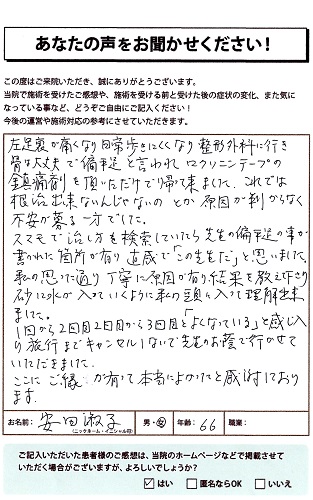 あなたの声をお聞かせください！
この度はご来院いただき、誠にありがとうございます。
当院で施術を受けたご感想や、施術を受ける前と受けた後の症状の変化、また気に
なっている事など、どうぞご自由にご記入ください！
今後の運営や施術対応の参考にさせていただきます。
左足裏が痛くなり日常歩きにくくなり整形外科に行き
骨は大丈夫で偏平足と言われ ロクソニンテープの
鎮痛剤を頂いただけで帰って来ました。これでは
根治出来ないんじゃないの とか 原因が判からなく
不安が募る一方でした。
スマホで治し方を検索していたら先生の偏平足の事が
書かれた箇所が有り直感で「この先生だ」と思いました。
私の思った通り 丁寧に原因が有り結果を教え下さり
砂に水が入っていくように私の頭に入って理解出来
ました。
1回から2回目2回目から3回目と「よくなっている」と感じ入
り旅行までキャンセルしないで先生のお蔭で行かせて
いただきました。
ここに ご縁 が有って本当によかったと感謝しており
ます。
お名前: 安田淑子 男・女 年齢: 66 職業:
(ニックネーム・イニシャル可)
ご記入いただいた患者様のご感想は、当院のホームページなどで掲載させて
いただく場合がございますが、よろしいでしょうか？
☑はい □匿名ならOK □いいえ